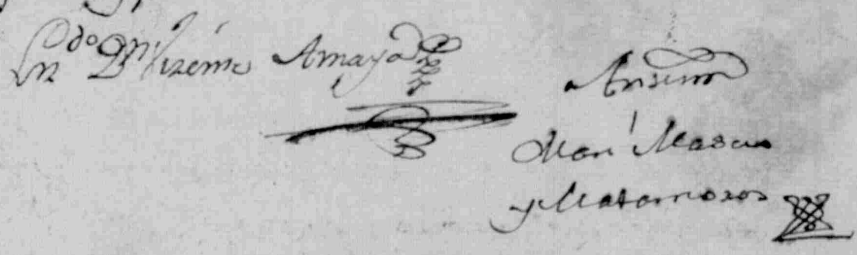 Lizdo Dn Vizente Amaya
Ante mi
Man Marcos
y Matamoros